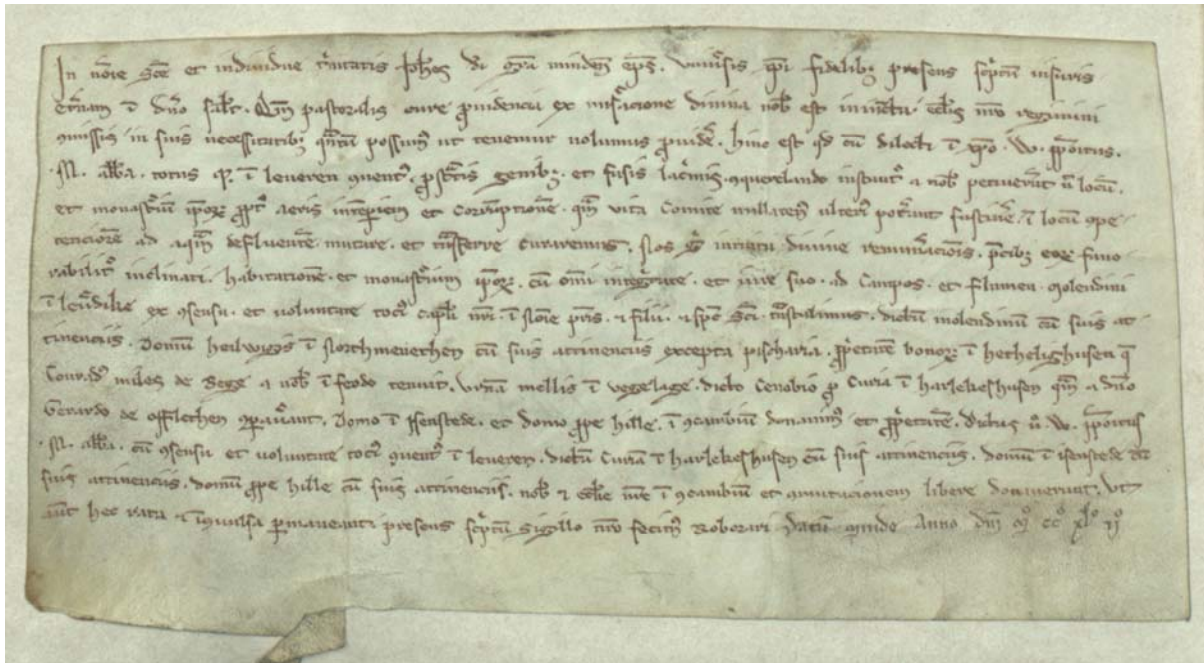 In noīe Sc̄e et individue Trinitatis Joh̄es di gr̄a minden̄ ep̄c. Univ̄sis xp̄i fidelibȝ presens sc̄ptū insuris
et̄nam ī dn̄o salt̄. Qm̄ pastoralis cure p̱videncia ex divina nob̄ est iniūcta eccl̄iis nr̄o regimini
ꝯmissis in suis necessitatibȝ qn̄tū possumꝰ ut tenemur volumus p̱vidē. hinc est qd̄ cū dilecti ī xp̄o .W. p̄poitus.
.M. abb̄a. totus ī leveren ꝯvent̄ꝰ. p̱st̄tis genibȝ et fusis lac̄mis ꝯquerelando a nob̄ petiverūt ū locū.
et monast̄ium ip̄oꝝ p̱pt̄ aeris intēpiem et corrupcionē. qm̄ vita Comite nullaten̄ꝰ ulteriꝰ pot̄unt sustinē. ī locū ꝯpe
tenciorē ad aqm̄ defluentē mutare. et t̄nsferre curaremus. Nos g̊ intuitu divine remun̄acionis. p̄cibȝ eoꝝ favo
rabilit̄ inclinati. habitacionē. et monast̄ium ip̄oꝝ. cū om̄i inteḡtate. et iure suo. ad Campos. et flumen molendini
ī ex ꝯsensu. et voluntate tociꝰ capl̄i nr̄i. ī noīe pr̄is. ⁊ filii. ⁊ sp̄c sc̄i. t̄nstulimus. dictum molendinū cū suis at
tinenciis. Domū heilwigis ī Northmenerthen cū suis attinenciis excepta pischaria. p̱prietatē bonoꝝ ī hethelighusen q̄
Conradꝰ miles de Bege a nob̄ ī feodo tenuit. urnam mellis ī vegelage. dicto Cenobio p̱ Curia ī harlekeshusen qm̄ a dn̄o
Gerardo de offlethen ꝯpavant̄. Domo ī ysenstede. et domo p̱pe hille. ī ꝯcambiū donavimꝰ et p̱prietatē. dictus ū. W. p̄poitus
.M. abb̄a. cū ꝯsensu et voluntate tociꝰ ꝯventꝰ ī leveren. dictā Curiā ī harlekeshusen cū suis attinenciis. domum ī isenstede cū
suis attinenciis. domū p̱pe hille cū suis attinenciis. nob̄ ⁊ eccl̄ie nr̄e ī ꝯcambiū et ꝯmutacionem libere donaverunt. ut
aut̄ hec rata ⁊ īꝯvulsa p̱maneant presens sc̄ptū sigillo nr̄o fecimꝰ Roborari Datū Minde Anno dn̄i mͦ ccͦ xlͦ iiͦ